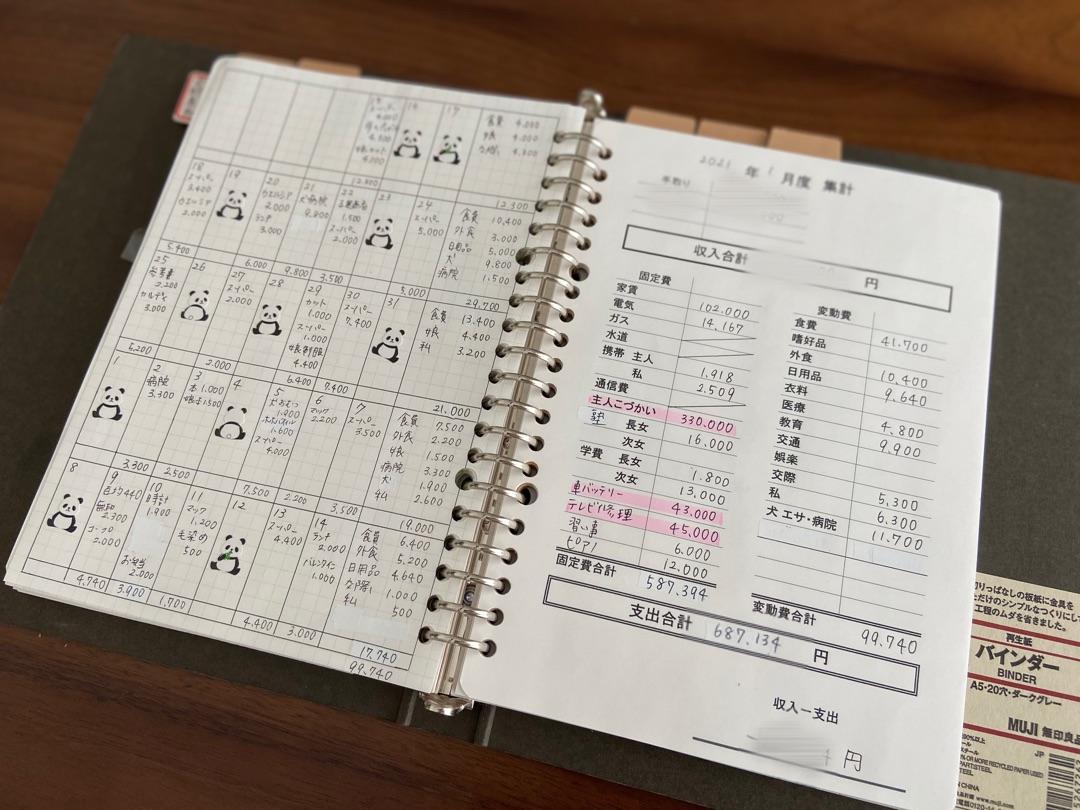 16
17
食費 4,000
娘 4,000
交際 4,300
12,300
12,300
18
スーパー
3,400
ウエルシア
2,000
19
20
ウエルシア
2,000
ランチ
3,000
21
犬病院
9,800
22
1,500
スーパー
2,000
23
24
スーパー
5,000
食費 10,400
外食 3,000
日用品 5,000
犬 9,800
病院 1,500
5,400
6,000
9,800
3,500
5,000
29,700
25
参考書
2,200
カルディ
3,000
26
27
スーパー
2,000
28
29
カット
1,000
スーパー
1,000
娘制服
4,400
30
スーパー
7,400
31
食費 13,400
娘 4,400
私 3,200
5,200
2,000
6,400
7,400
21,000
1
2
病院
3,300
3
本 1,000
娘本 1,500
4
5
犬おむつ
1,900
1,600
スーパー
4,000
6
マック
2,200
7
スーパー
3,500
食費 7,500
外食 2,200
娘 1,500
病院 3,300
犬 1,900
私 2,600
3,300
2,500
7,500
2,200
3,500
19,000
8
9
440
無印
2,300
コープ
2,000
10
時計
1,900
お弁当
2,000
11
マック
1,200
毛染め
500
12
13
スーパー
4,400
14
ランチ
2,000
バレンタイン
1,000
食費 6,400
外食 5,200
日用品 4,640
交際 1,000
私 500
4,740
3,900
1,700
4,400
3,000
17,740
99,740
2021 年 1 月度 集計
手取り
収入合計 円
固定費
家賃 102,000
電気 14,167
ガス
水道
携帯 主人 1,918
私 2,509
通信費
主人こづかい 330,000
塾 長女 16,000
次女
学費 長女 1,800
次女 13,000
車バッテリー 43,000
テレビ修理 45,000
習い事 6,000
ピアノ 12,000
固定費合計 587,394
変動費
食費 41,700
嗜好品
外食 10,400
日用品 9,640
衣料
医療 4,800
教育 9,900
交通
娯楽
交際 5,300
私 6,300
犬 エサ・病院 11,700
変動費合計 99,740
支出合計 687,134 円
収入ー支出
円
切りっぱなしの板紙に金具を
ただけのシンプルなつくりにして
工程のムダを省きました。
再生紙
バインダー
BINDER
A5・20穴・ダークグレー
MUJI 無印良品
JP
OR MORE RECYCLED PAPER USED
CHINA